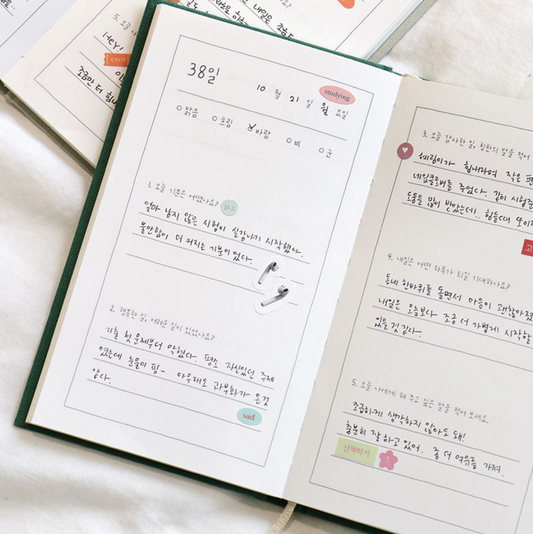 5. 오늘
Hey!
조금만 더 힘내
38일
10 월 21 일 월 요일
studying
맑음 흐림 바람 비 눈
1. 오늘 기분은 어땠나요? D-3
얼마 남지 않은 시험이 실감나기 시작했다.
불안함이 더 커지는 기분이 었다.
2. 행복한 일, 어려운 일이 있었나요?
기출 첫 문제부터 막혔다. 평소 자신있던 주제
였는데 눈물이 핑- 아무래도 과부화가 온것
같다.
sad
3. 오늘 감사한 일, 칭찬의 말을 적어
힘내라며 작은
네잎클로버를 주었다. 같이 시험준
도움을 많이 받았는데, 힘들때 또 이
4. 내일은 어떤 하루가 되길 기대하나요?
동네 한바퀴를 돌면서 마음이 괜찮아졌
내일은 오늘보다 조금 더 가볍게 시작할
있을 것 같다.
5. 오늘 나에게 해 주고 싶은 말을 적어 보세요.
조급하게 생각하지 않아도 돼!
충분히 잘 하고 있어. 좀 더 여유를 가져.
산책하기